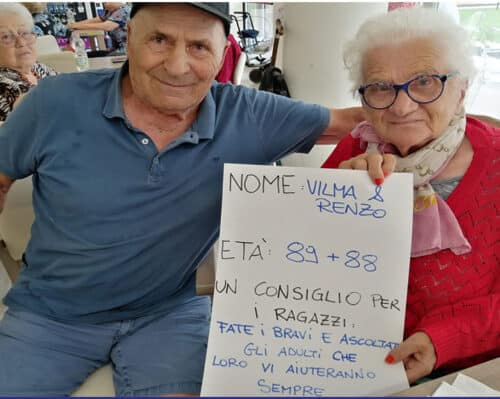 NOME: VILMA &
RENZO
ETÀ: 89 + 88
UN CONSIGLIO PER
I RAGAZZI:
FATE I BRAVI E ASCOLTATE
GLI ADULTI CHE
LORO VI AIUTERANNO
SEMPRE